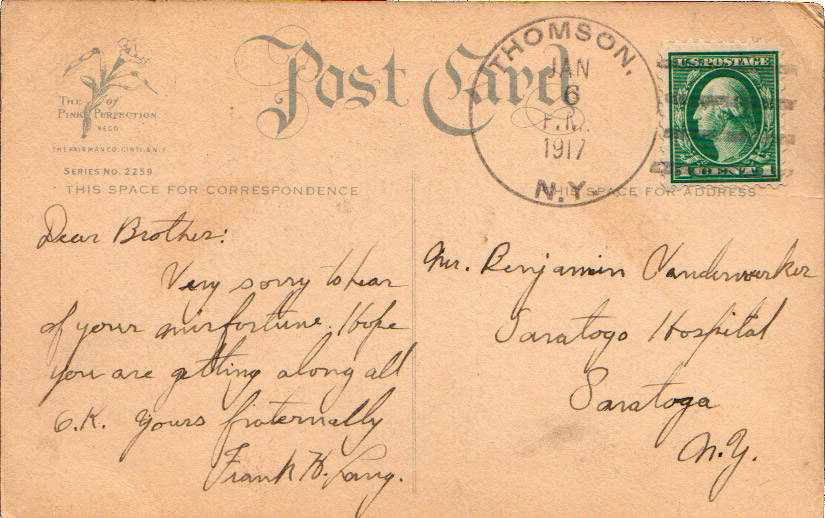 Post Card
THE of
PINK PERFECTION
REGD
THE FAIRMAN CO. CINTI. & N.Y.
SERIES No. 2259
THIS SPACE FOR CORRESPONDENCE
THOMSON,
JAN
6
P.M.
1917
N.Y.
U.S. POSTAGE
1 CENT 1
THIS SPACE FOR ADDRESS
Dear Brother:
Very sorry to hear
of your misfortune. Hope
you are getting along all
O.K. Yours fraternally
Frank H. Lang.
Mr. Benjamin Vanderwerker
Saratoga Hospital
Saratoga
N.Y.